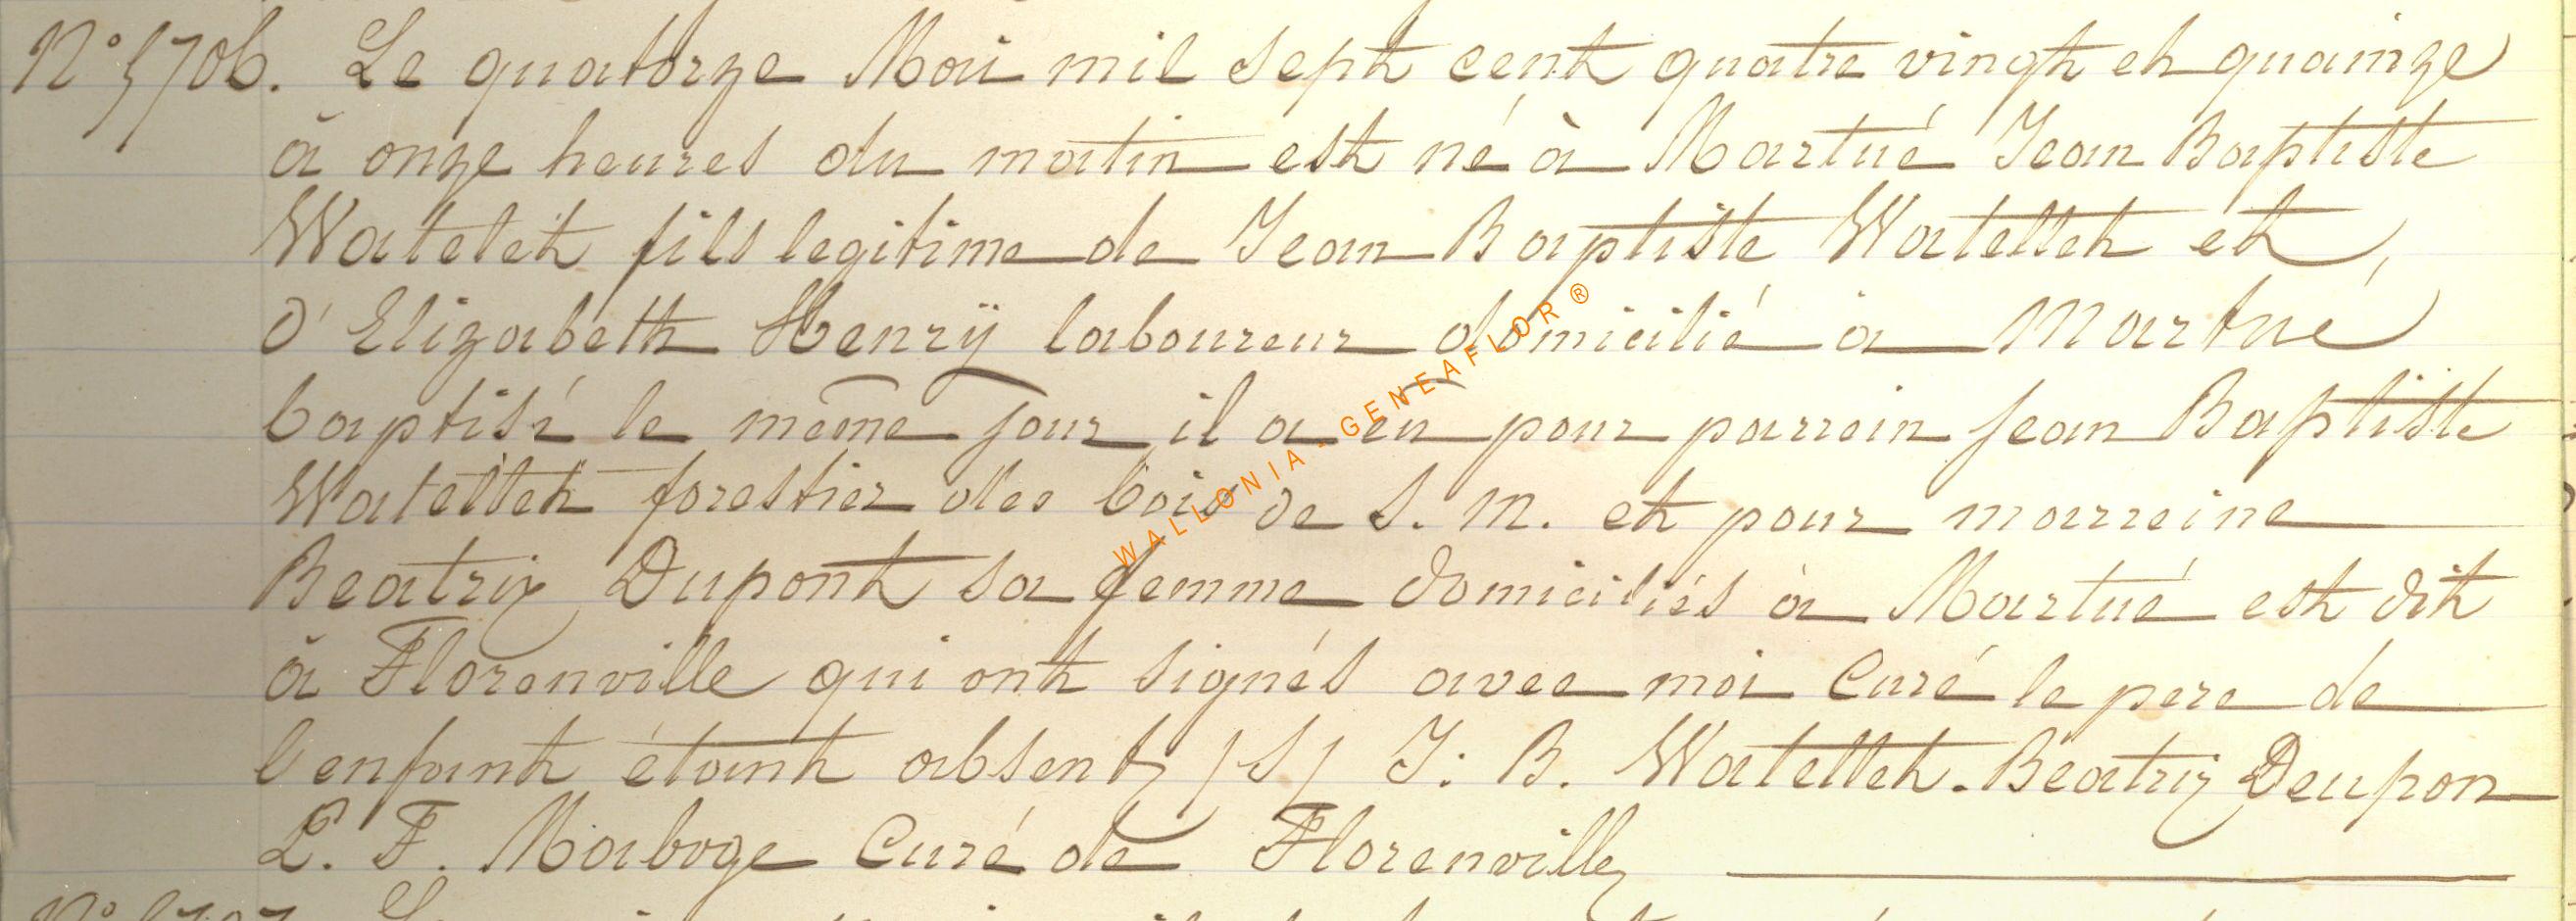 N° 5706. Le quatorze Mai mil sept cent quatre vingt et quainze
à onze heures du matin est né à Martué Jean Baptiste
Watelet fils legitime de Jean Baptiste Wattellet et
d'Elizabeth Henrÿ laboureur domicilié à Martué
baptisé le même jour il a eu pour parrain Jean Baptiste
Watellet forestier des bois de S. M. et pour marreine
Beatrix Dupont sa femme domiciliés à Martué est dit
à Florenville qui ont signés avec moi Curé le pere de
l'enfant étant absent /S/ J: B. Watellet. Beatrix Deupon
L. F. Maboge Curé de Florenville
WALLONIA - GENEAFLOR ®